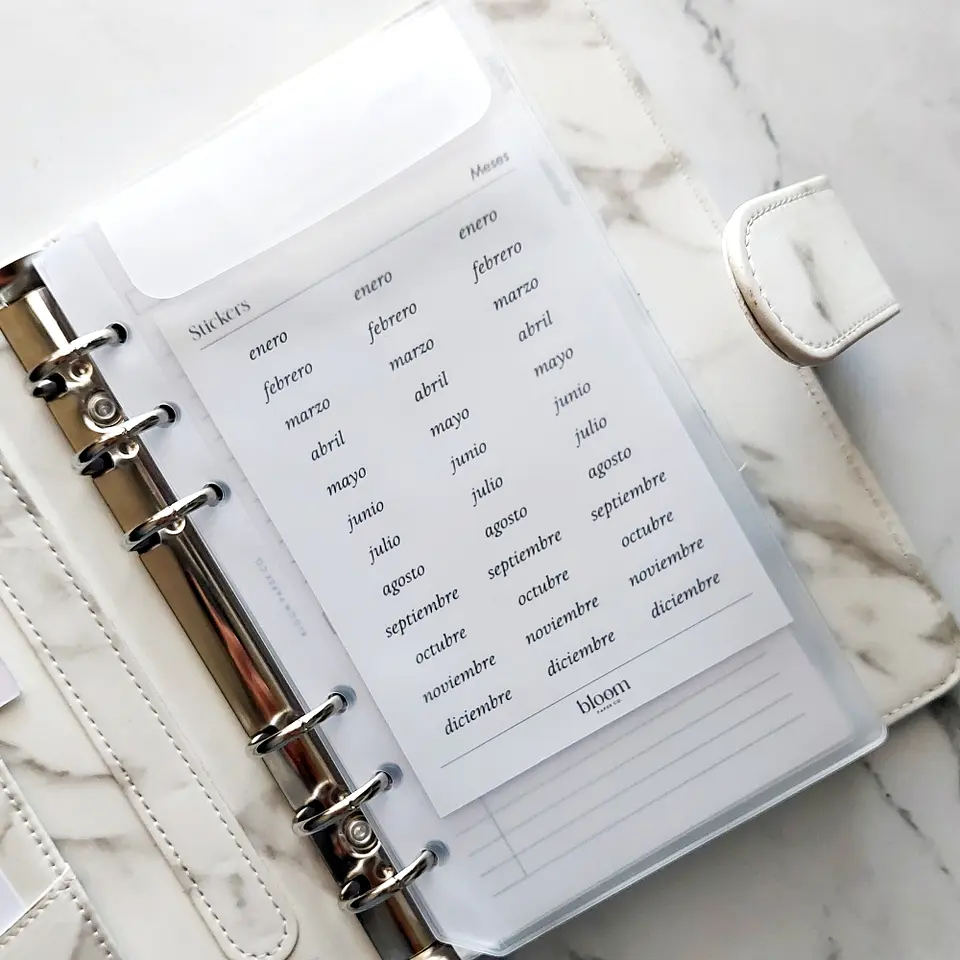 Stickers Meses
enero enero enero
febrero febrero febrero
marzo marzo marzo
abril abril abril
mayo mayo mayo
junio junio junio
julio julio julio
agosto agosto agosto
septiembre septiembre septiembre
octubre octubre octubre
noviembre noviembre noviembre
diciembre diciembre diciembre
bloom
PAPER CO.
BLOOM PAPER CO